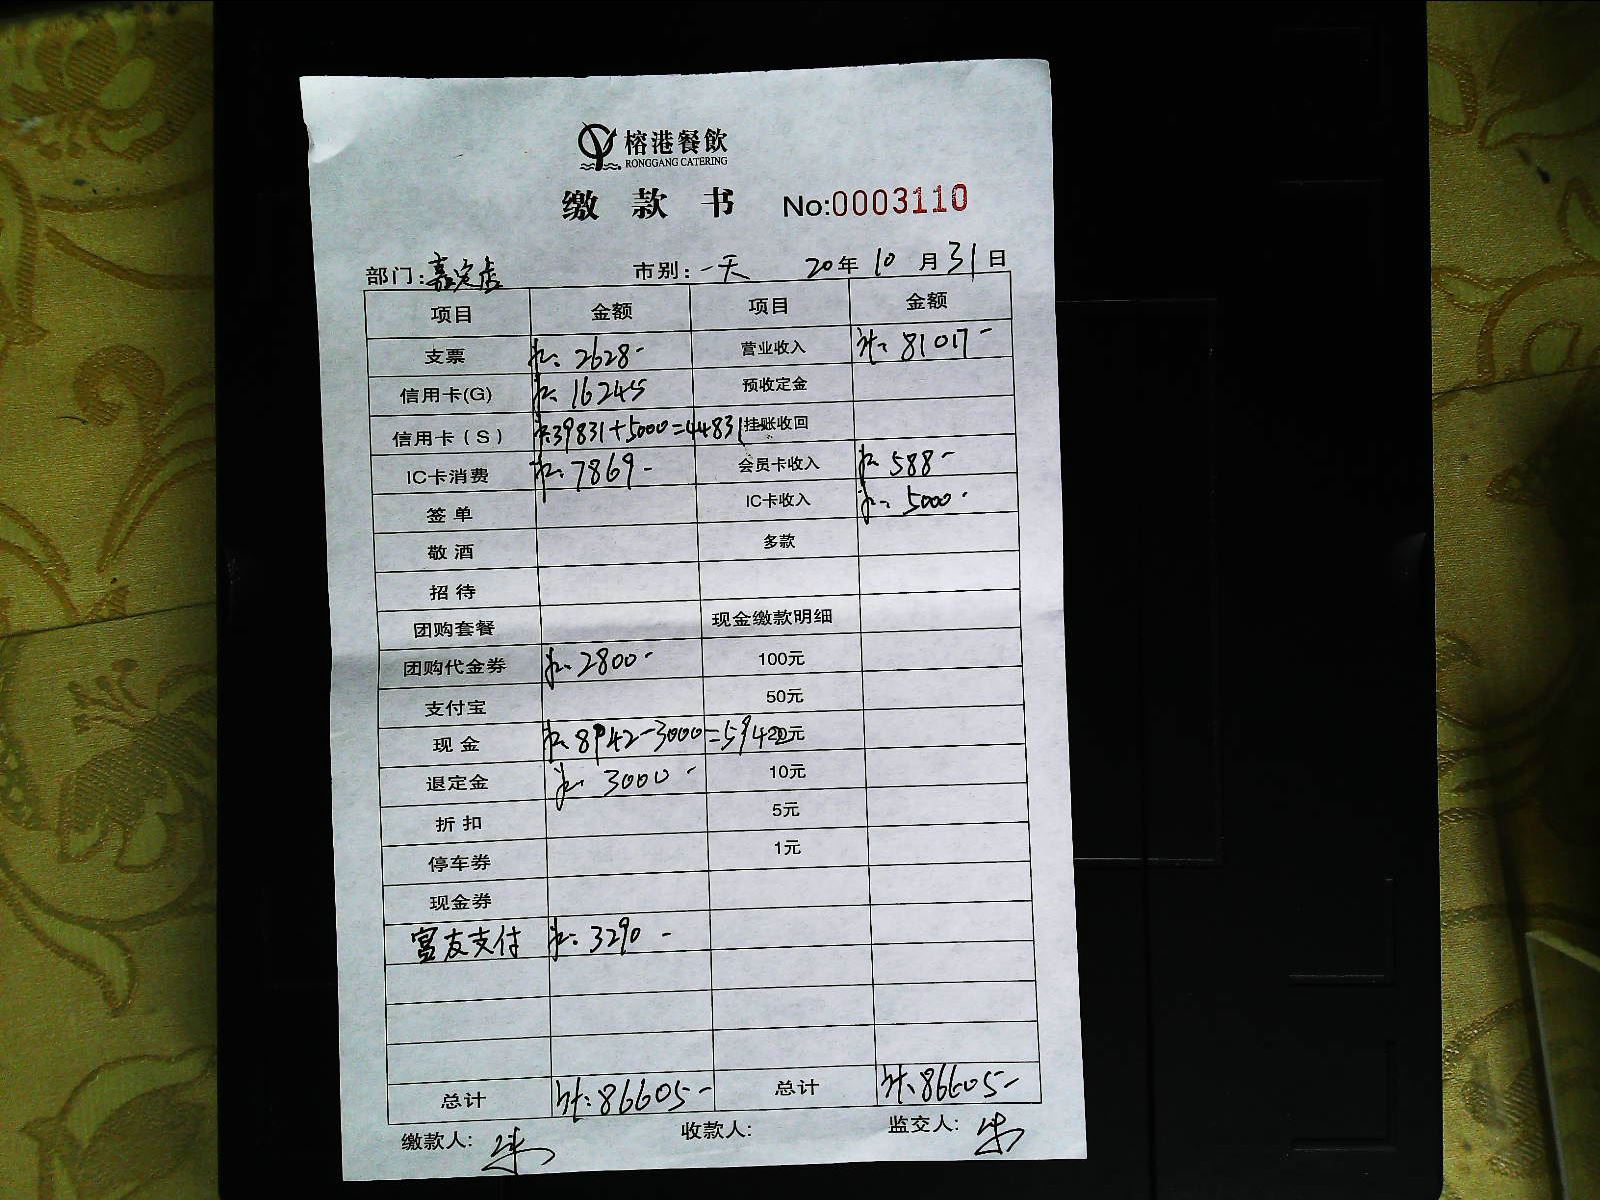 榕港餐飲
RONGGANG CATERING
缴款书 No:0003110
部门:嘉定店 市别:一天 20年10月31日
项目 金额 项目 金额
支票 2628- 营业收入 计:81017-
信用卡(G) 16245 预收定金
信用卡(S) 39831+5000=44831 挂账收回
IC卡消费 7869- 会员卡收入 588-
签单 IC卡收入 5000-
敬酒 多款
招待
团购套餐 现金缴款明细
团购代金券 2800- 100元
支付宝 50元
现金 8942-3000=5942 20元
退定金 3000- 10元
折扣 5元
停车券 1元
现金券
友支付 3290-
总计 计:86605- 总计 计:86605-
缴款人: 收款人: 监交人: